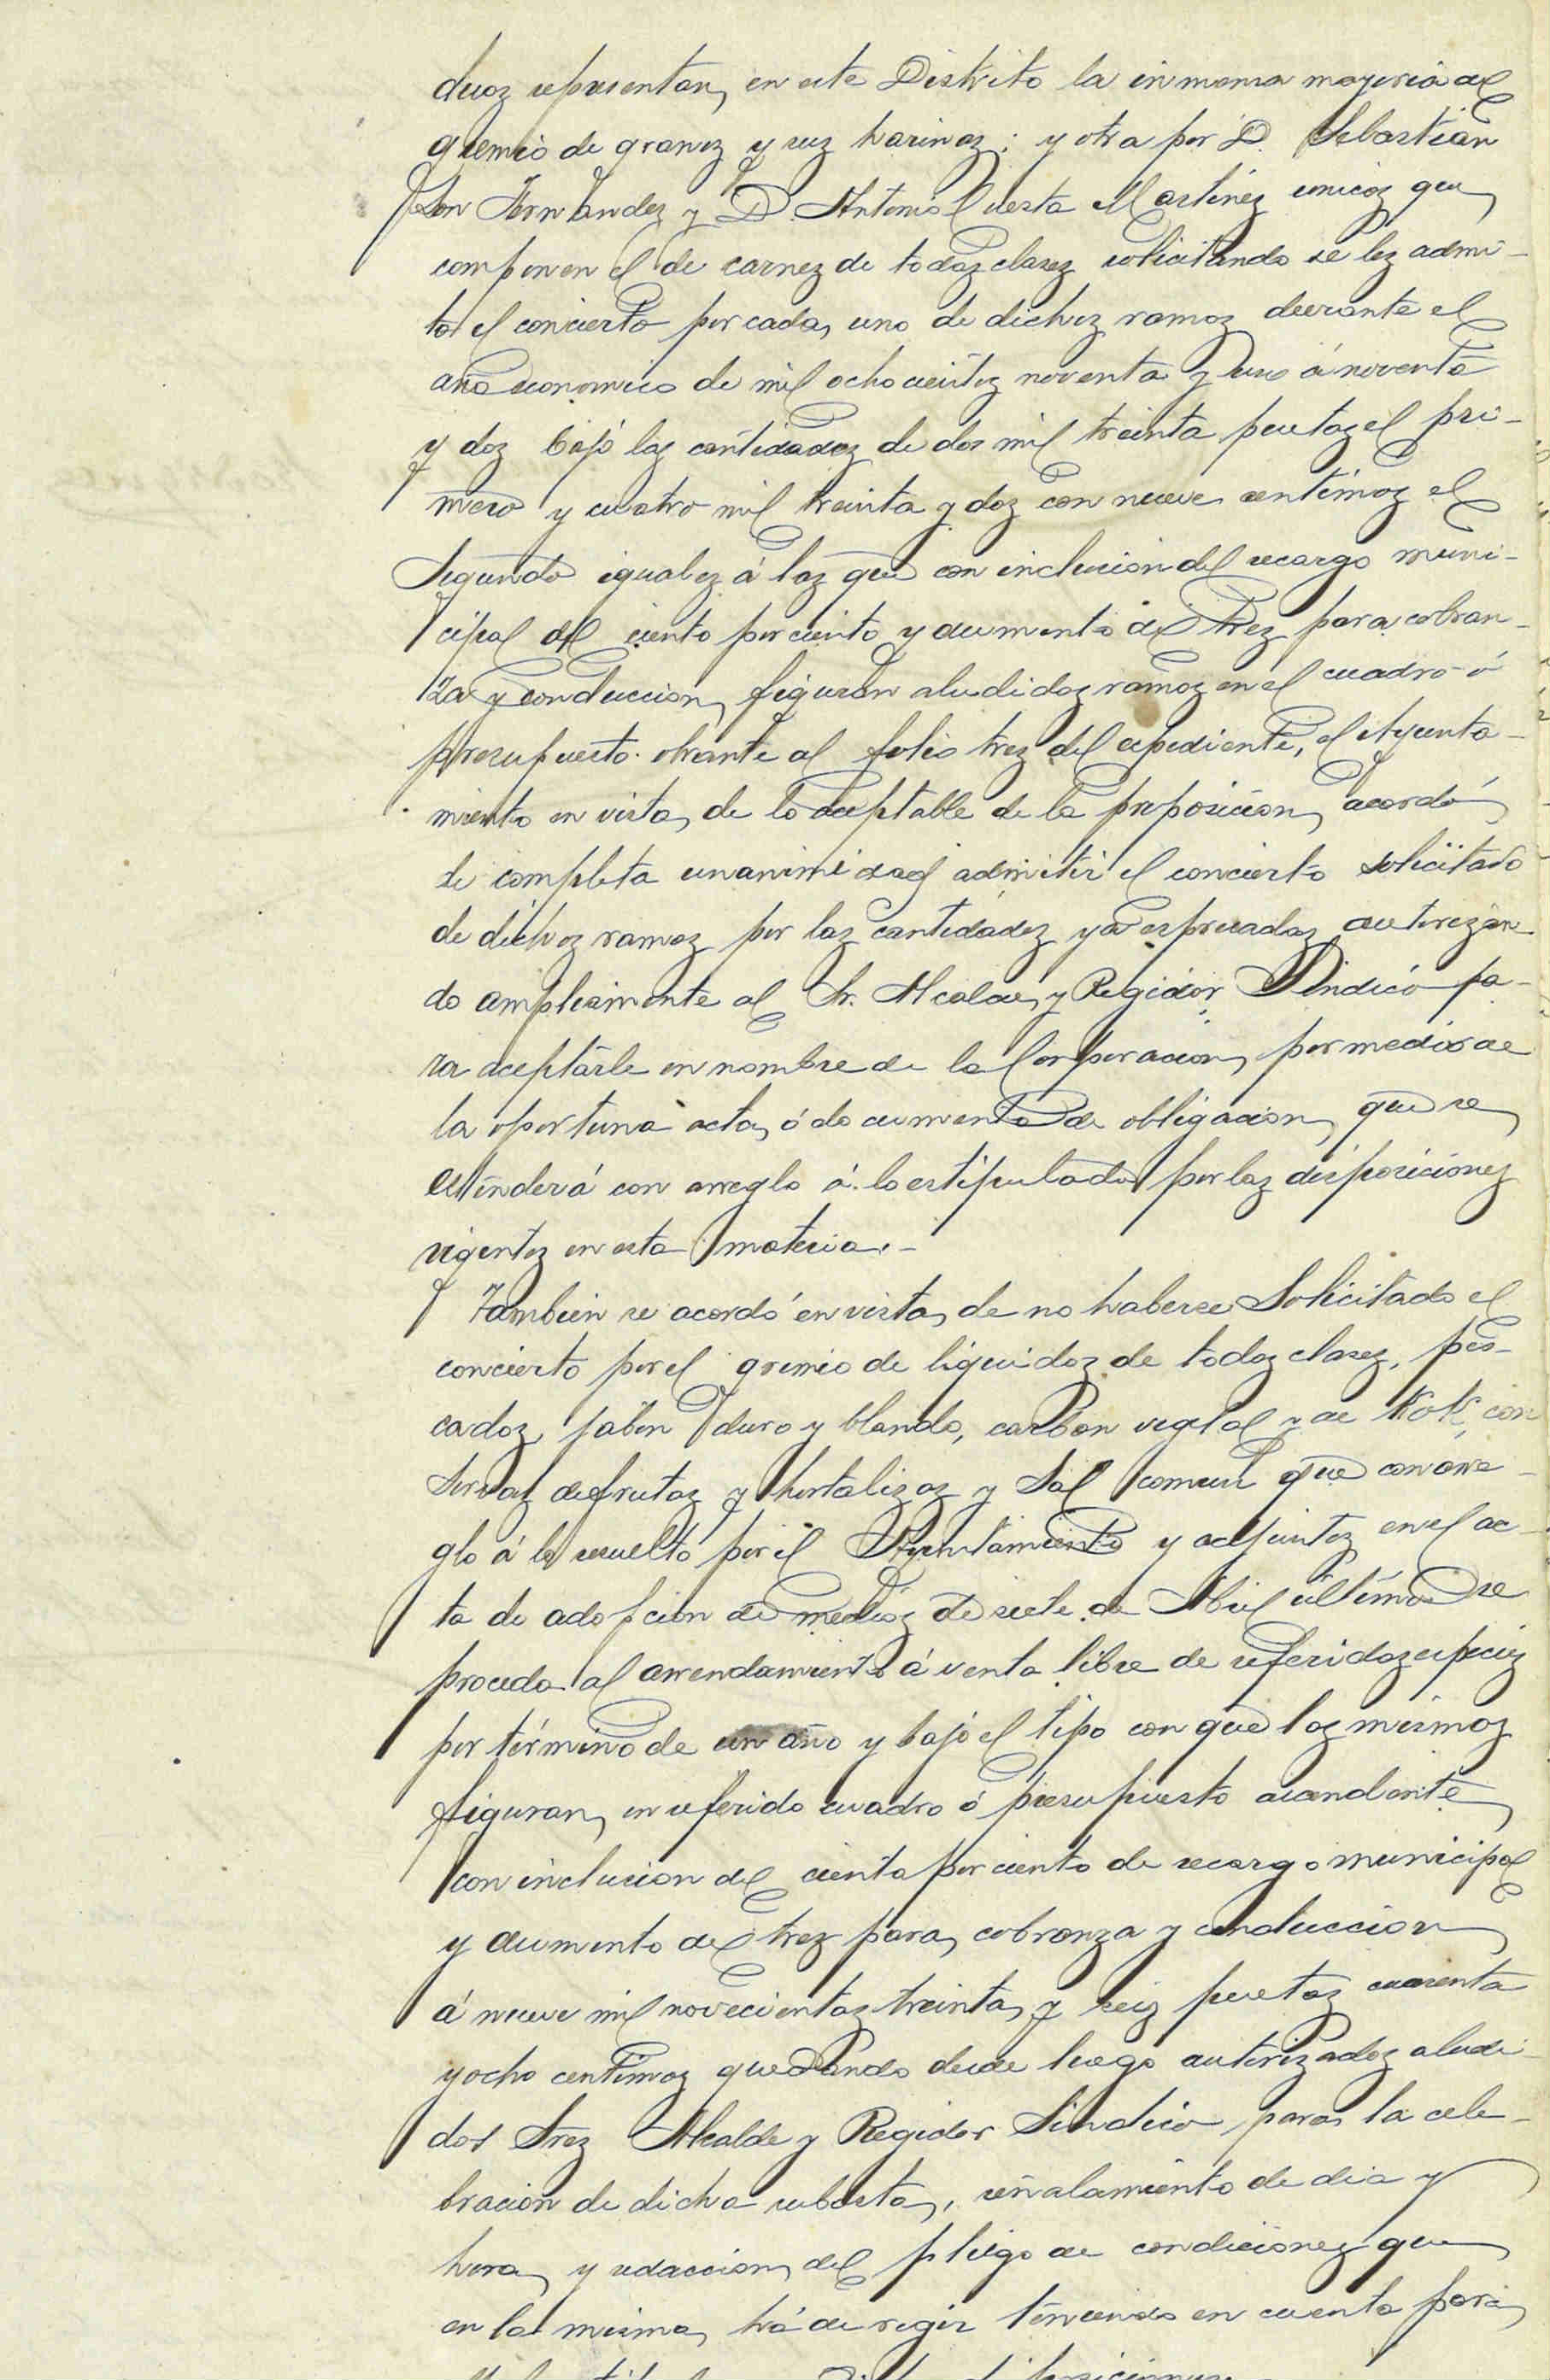 duoz representan en este Distrito la inmensa mayoria del
gremio de granoz y suz harinaz; y otra por D. Sebastian
Fernandez y D. Antonio Cuesta Martinez unicoz que
componen el de carnez de todaz clasez solicitando se lez admi-
ta el concierto por cada uno de dichoz ramoz durante el
año economico de mil ochocientoz noventa y uno á noventa
y doz bajo laz cantidadez de dos mil treinta pesetaz el pri-
mero y cuatro mil treinta y doz con nueve centimoz el
Segundo igualez á laz que con inclusion del recargo muni-
cipal del ciento por ciento y aumento del trez para cobran-
za y conduccion figuran aludidoz ramoz en el cuadro ó
presupuesto obrante al folio trez del expediente, el Ayunta-
miento en vista de lo aceptable de la proposicion acordó
de completa unanimidad admitir el concierto solicitado
de dichoz ramoz por laz cantidadez ya espresadaz autorizan-
do ampliamente al Sr. Alcalde y Regidor Sindico pa-
ra aceptarle en nombre de la Corporacion por medio de
la oportuna acta ó documento de obligacion que se
estenderá con arreglo á lo estipulado por laz disposicionez
vigentez en esta materia.-
Tambien se acordó en vista de no haberse Solicitado el
concierto por el gremio de liquidoz de todaz clasez, pes-
cadoz, jabon duro y blando, carbon vegetal y de Kok, con
servaz de frutaz y hortalizaz y Sal comun que con arre-
glo á lo resuelto por el Ayuntamiento y adjuntoz en el ac-
ta de adopcion de medioz de siete de Abril ultimo se
proceda al arrendamiento á venta libre de referidaz especiez
por término de un año y bajo el tipo con que laz mismaz
figuran en referido cuadro ó presupuesto ascendente
con inclusion del ciento por ciento de recargo municipal
y aumento del trez para cobranza y conduccion
á nueve mil novecientaz treinta y seiz pesetaz cuarenta
y ocho centimoz quedando desde luego autorizadoz aludi-
dos Srez Alcalde y Regidor Sindico para la cele-
bracion de dicha subasta, señalamiento de dia y
hora y redaccion del pliego de condicionez que
en la misma há de regir teniendo en cuenta para